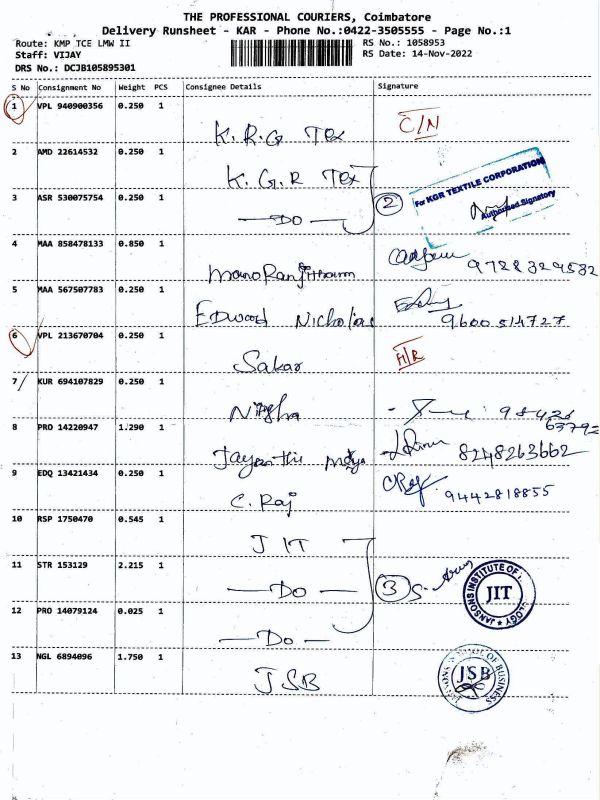 THE PROFESSIONAL COURIERS, Coimbatore
Delivery Runsheet - KAR - Phone No.:0422-3505555 - Page No.:1
Route: KMP TCE LMW II RS No.: 1058953
Staff: VIJAY RS Date: 14-Nov-2022
DRS No.: DCJB105895301
S No Consignment No Weight PCS Consignee Details Signature
1 VPL 940900356 0.250 1 K.R.G Tex C/N
2 AMD 22614532 0.250 1 K.G.R Tex
For KGR TEXTILE CORPORATION
Authorised Signatory
3 ASR 530075754 0.250 1 —DO— 2
4 MAA 858478133 0.850 1 manoRanjitham 9788329532
5 MAA 567507783 0.250 1 Edword Nicholas 9600514727
6 VPL 213670704 0.250 1 Sakar
7 KUR 694107829 0.250 1 98426
63792
8 PRO 14220947 1.290 1 Jayanthi 8248263662
9 EDQ 13421434 0.250 1 C. Raj 9442818855
10 RSP 1750470 0.545 1 JIT
11 STR 153129 2.215 1 —Do— 3
JANSONS INSTITUTE OF
JIT
12 PRO 14079124 0.025 1 —Do—
13 NGL 6894096 1.750 1 JSB
OF BUSINESS
JSB